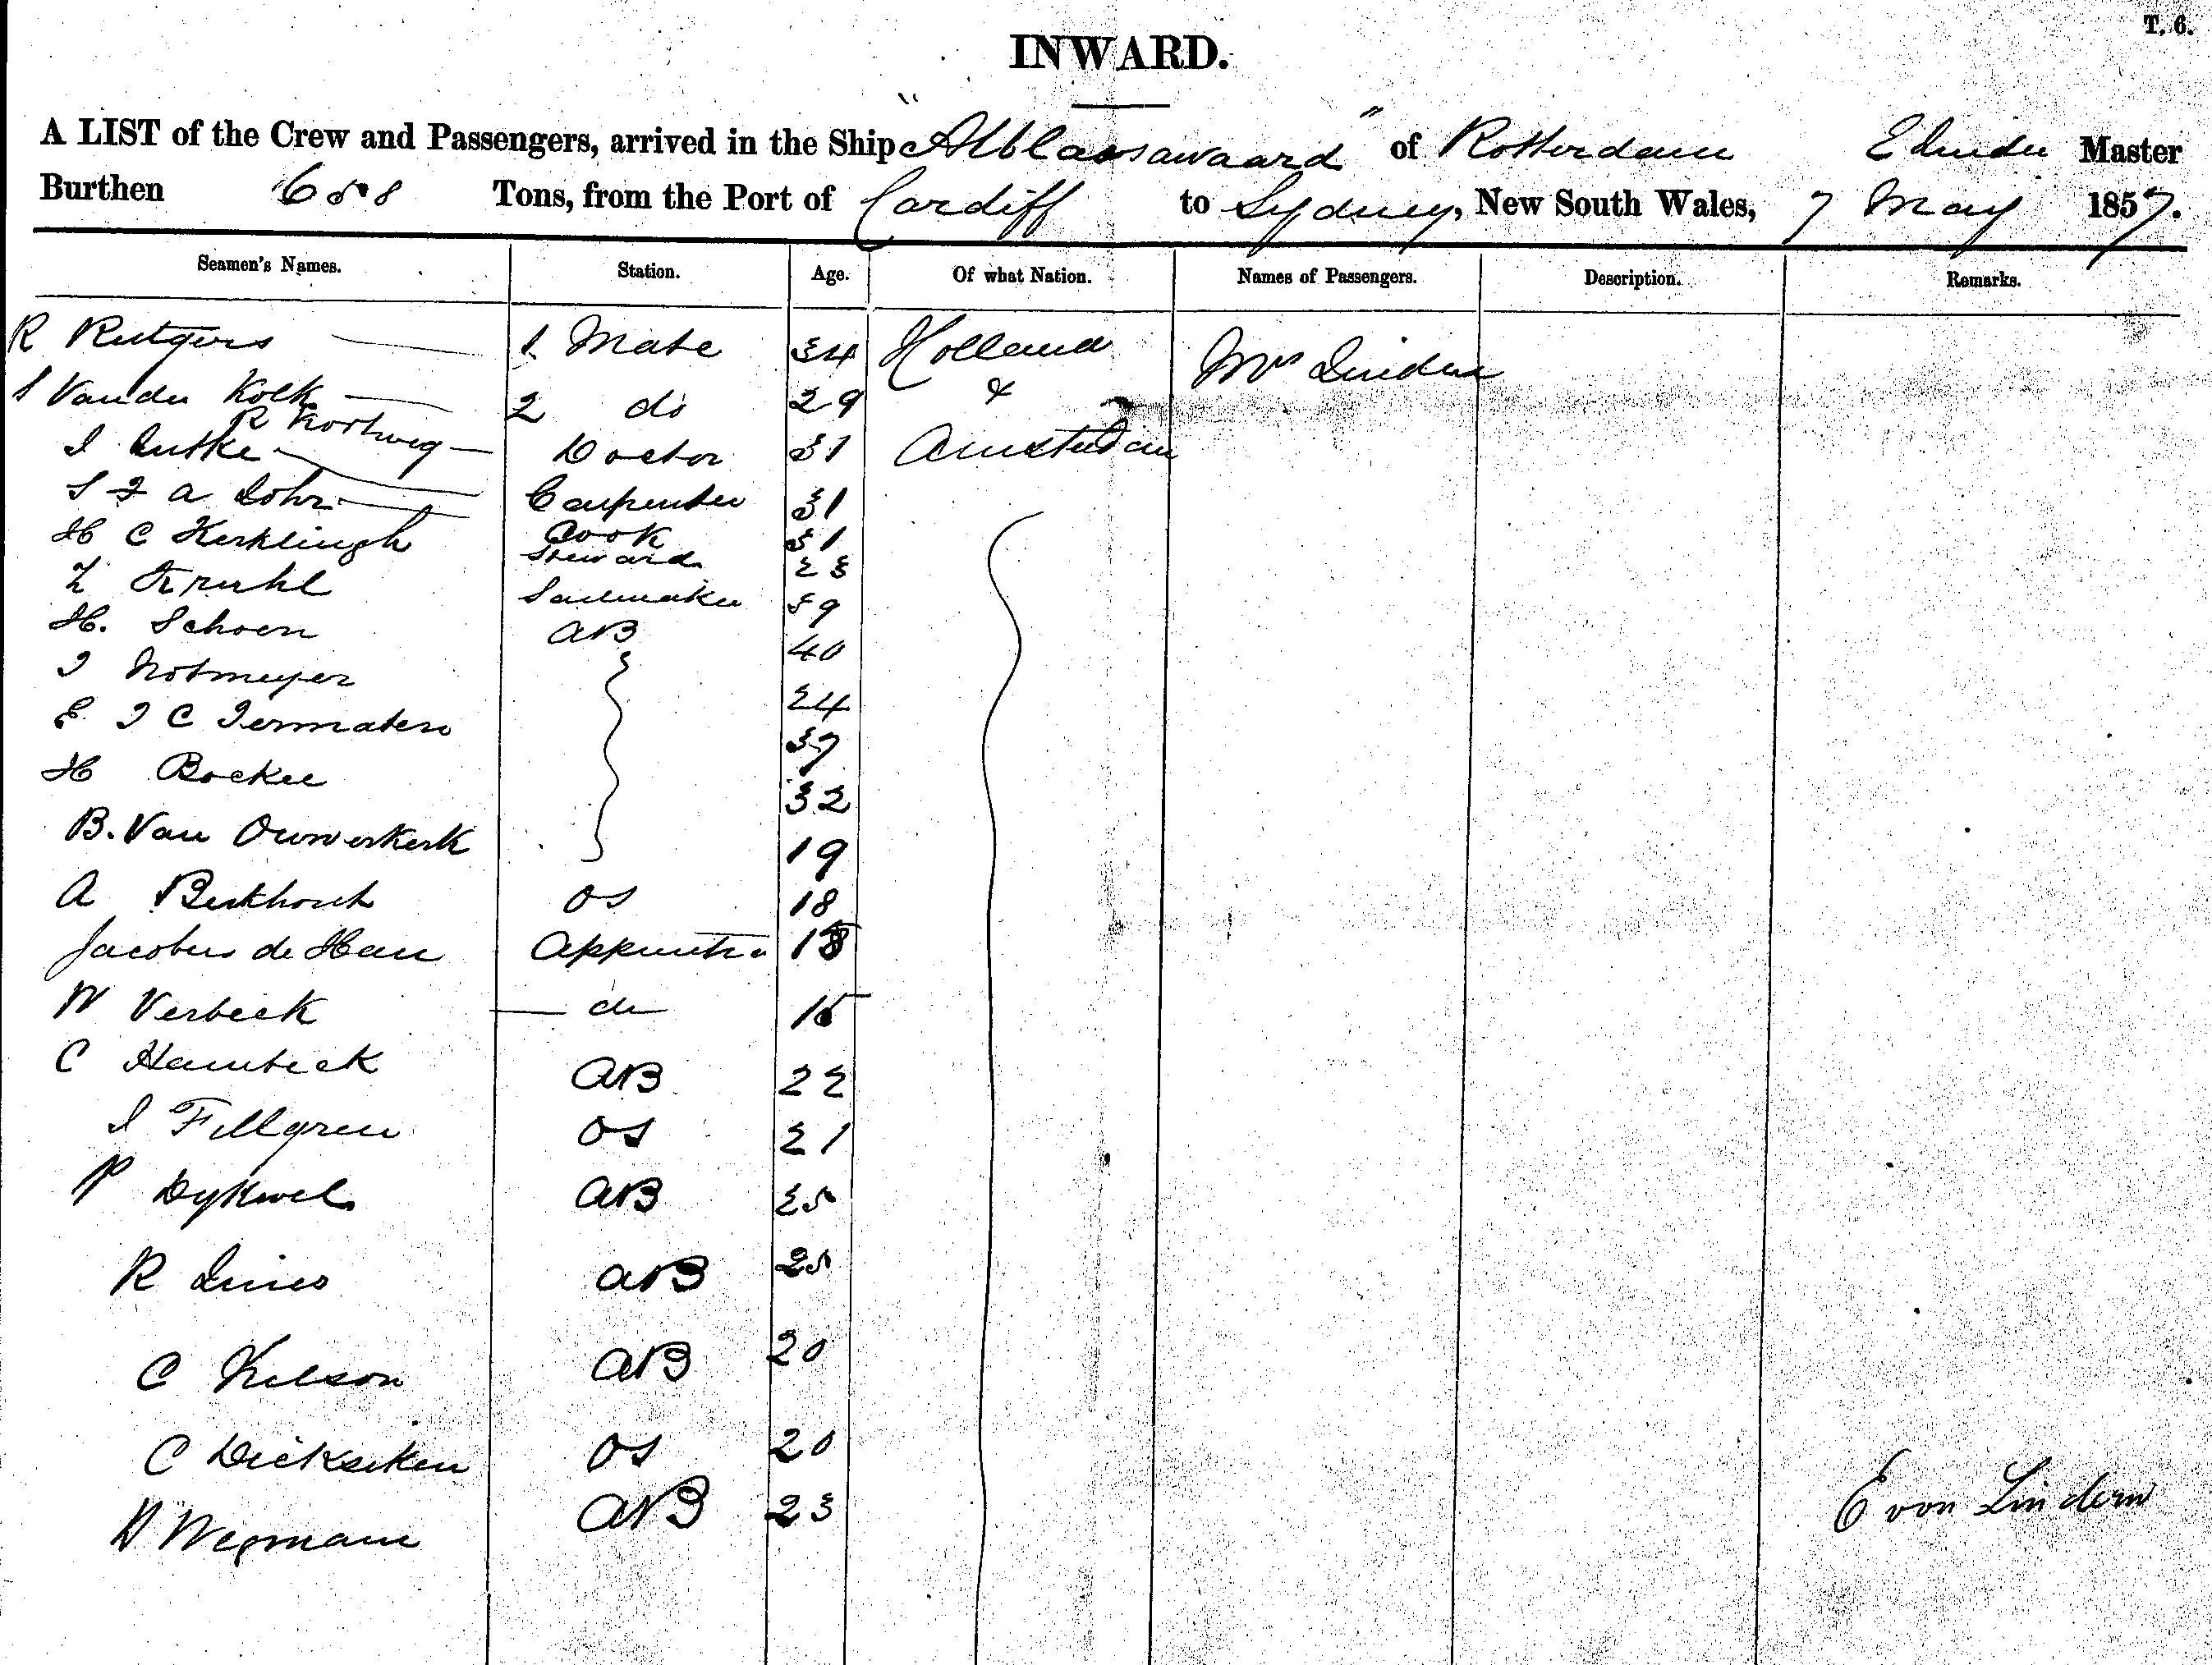 T. 6.
INWARD.
A LIST of the Crew and Passengers, arrived in the Ship "Alblassawaard" of Rotterdam E Linder Master
Burthen 658 Tons, from the Port of Cardiff to Sydney, New South Wales, 7 May 1857.
Seamen's Names. Station. Age. Of what Nation. Names of Passengers. Description. Remarks.
R Rutgers 1 Mate 34 Holland Mrs Linden
S Vander Kolk 2 do 29 &
R Kortweg Doctor 31 Amsterdam
I Lutke Carpenter 31
S F A Lohr Cook 31
H C Kerklingh Steward 23
Z Kruhl Sailmaker 39
H. Schoen AB 40
I Notmeyer 24
E I C Termaten 37
H Bocker 32
B. Van Ouwerkerk 19
A Berkhout OS 18
Jacobus de Haan Apprentice 18
W Verbeek do 15
C Hambeek AB 22
I Fillgren OS 21
P Dykwel AB 25
R Lines AB 25
C Nelson AB 20
C Dickseken OS 20
H Wegmann AB 23
E von Lindern